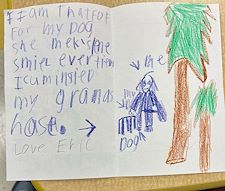 I am thatfor
for my DOg
she meks me
smiel ever
I cuminsted
my grands
hose. →
Love Eric
me
Dog